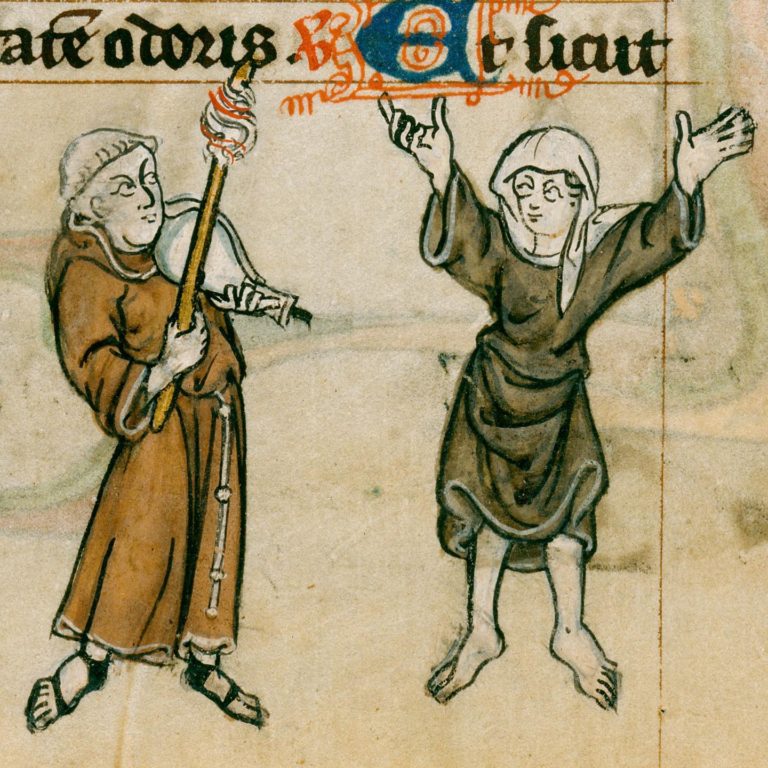 atē odoris. ℣ Et sicut